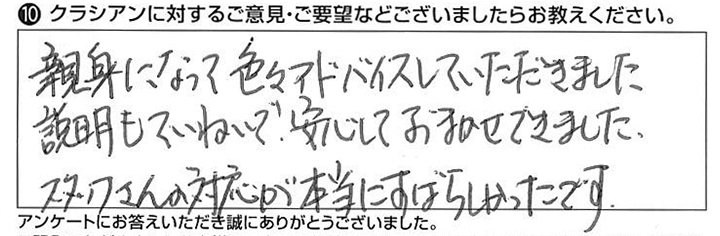 ❿ クラシアンに対するご意見・ご要望などございましたらお教えください。
親身になって色々アドバイスしていただきました
説明もていねいで、安心しておまかせできました、
スタッフさんの対応が本当にすばらしかったです。
アンケートにお答えいただき誠にありがとうございました。